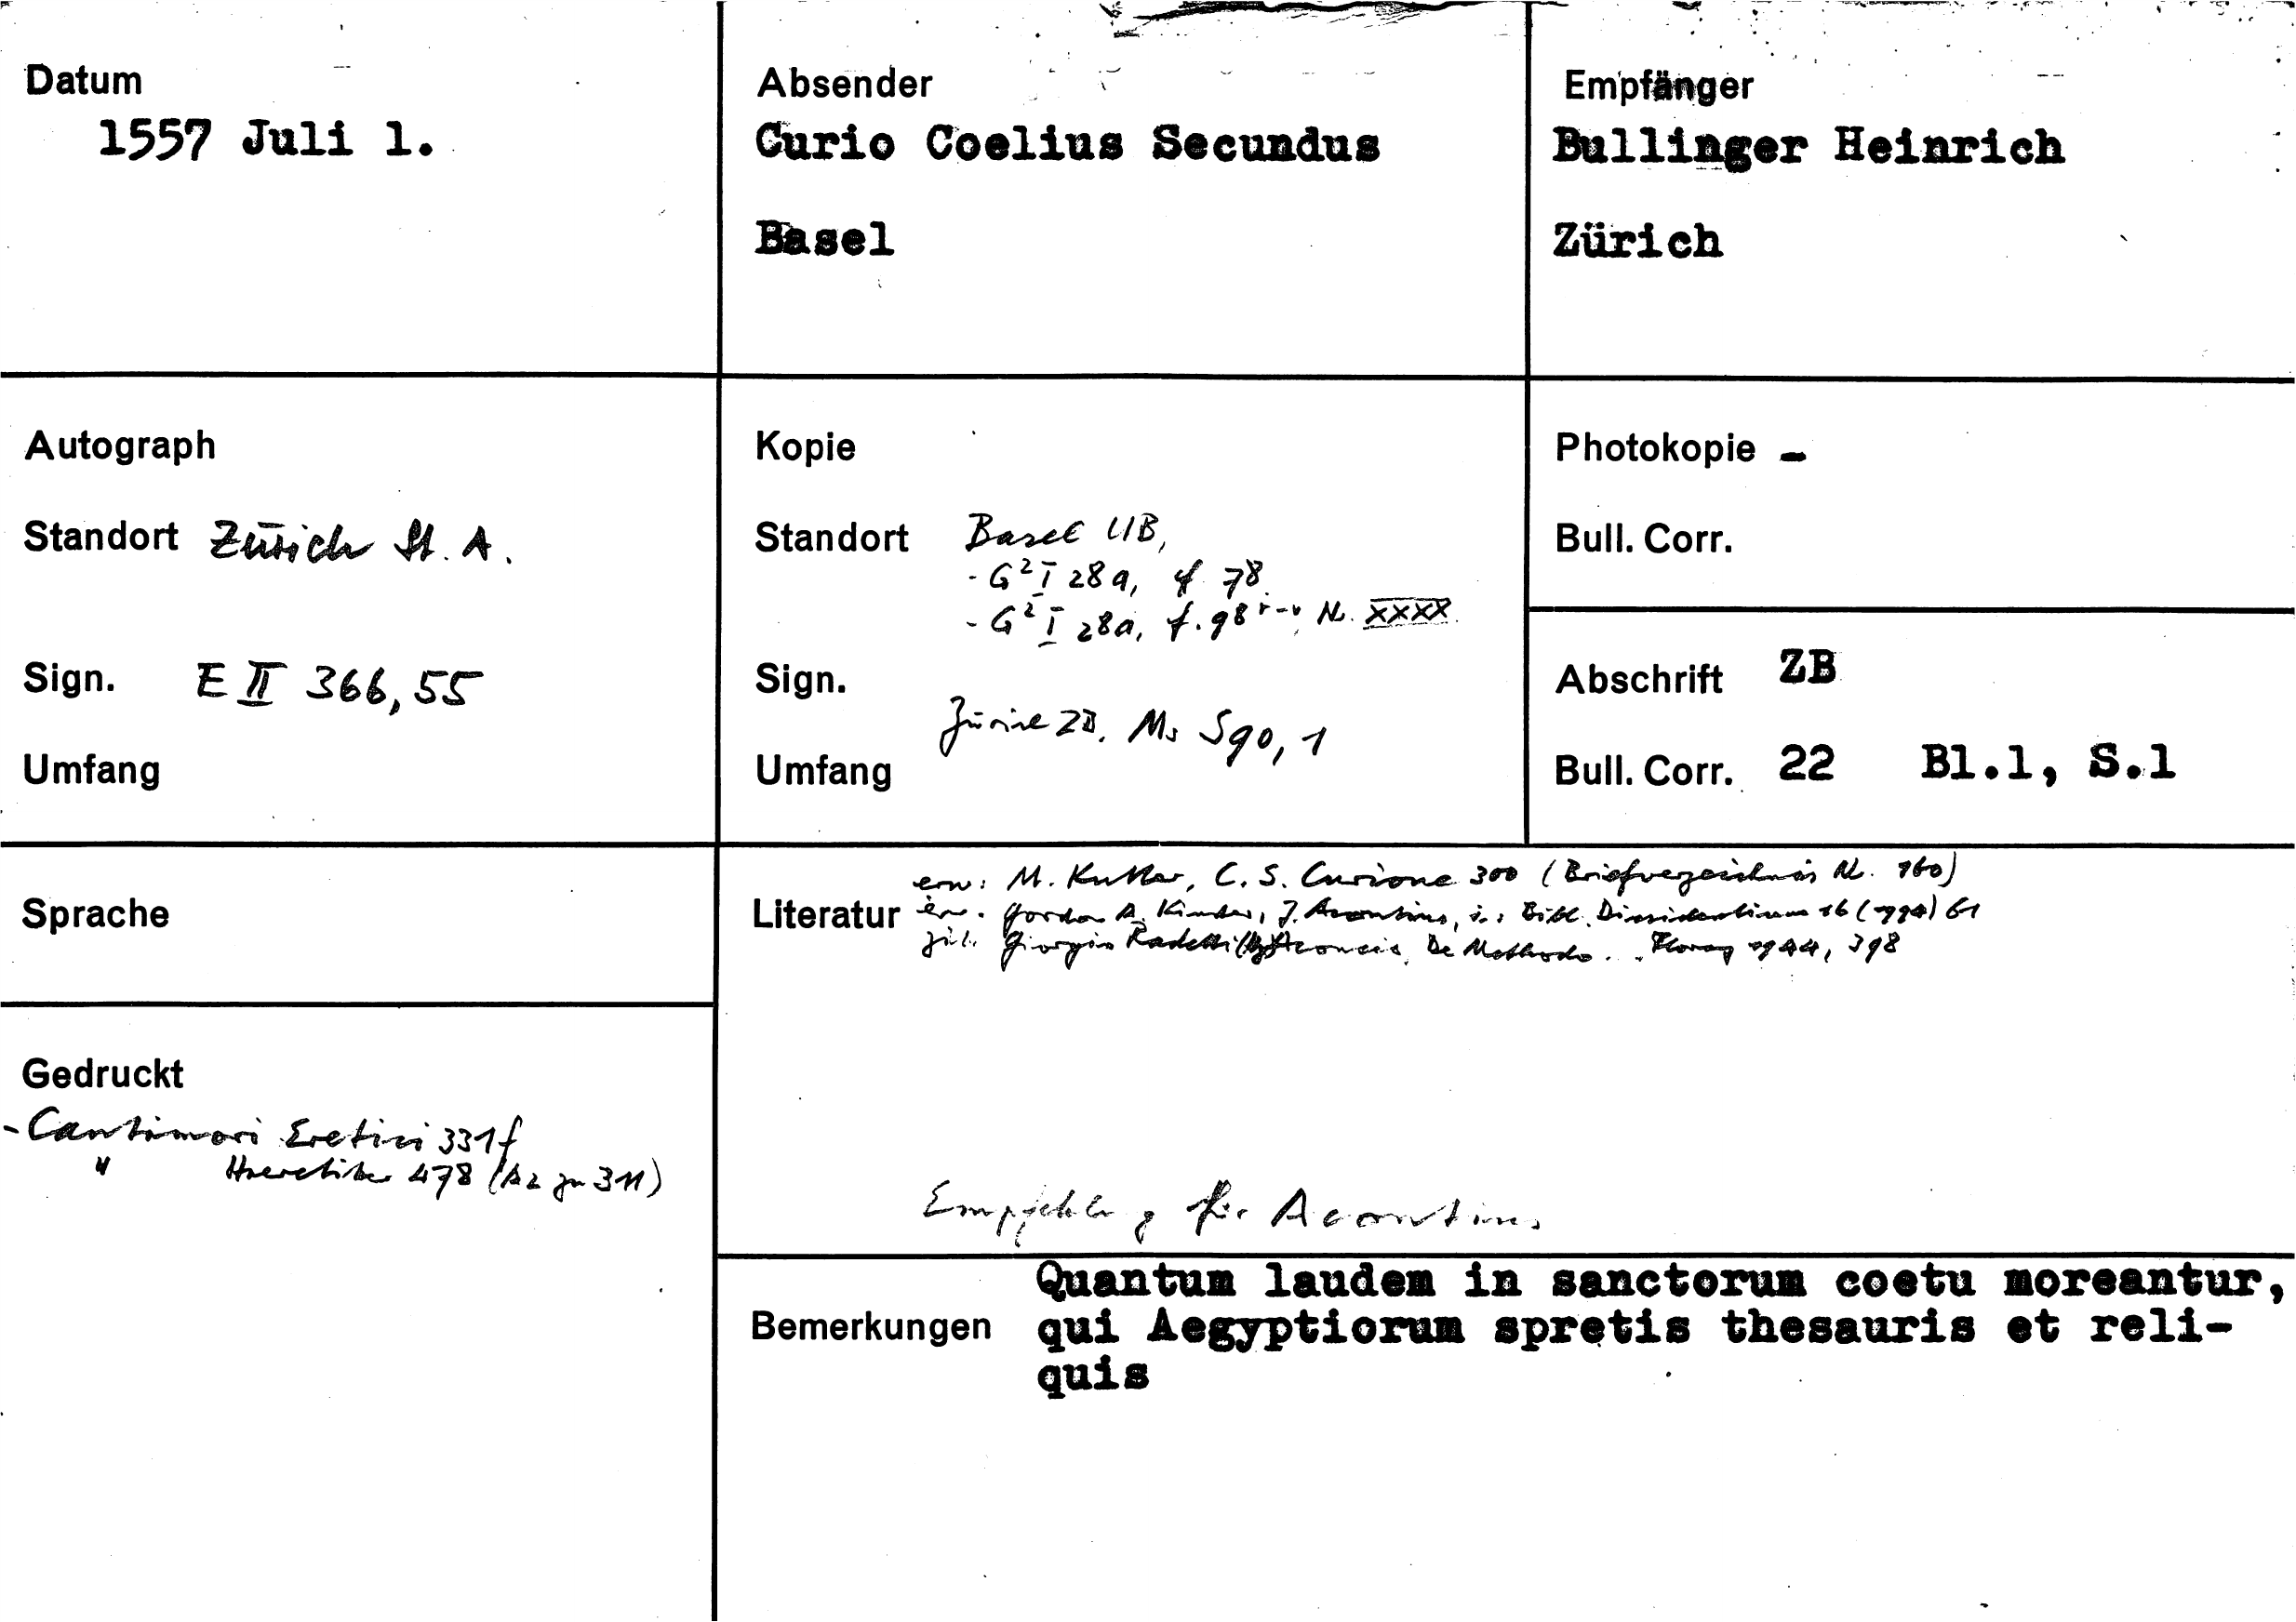 Datum
1557 Juli 1.
Absender
Curio Coelius Secundus
Basel
Empfänger
Bullinger Heinrich
Zürich
Autograph
Standort Zürich St. A.
Sign. E II 366, 55
Umfang
Kopie
Standort Basel UB,
- G² I 28a, f 78.
- G² I 28a, f. 98 r-v, Nr. XXXX.
Sign.
Zürich ZB, Ms S 90, 1
Umfang
Photokopie -
Bull. Corr.
Abschrift ZB
Bull. Corr. 22 Bl.1, S.1
Sprache
Literatur
erw: M. Kutter, C. S. Curione 300 (Briefverzeichnis Nr. 160)
erw. Gordon A. Kinder, J. Acontius, in: Bibl. Dissidentium 16 (1994) 61
zit. Giorgio Radetti Aconcio, De Methodo. 1944, 398
Empfehlung für Acontius
Gedruckt
- Cantimori Eretici 331f
" Haeretiker 478 (A2 zu 311)
Bemerkungen
Quantum laudem in sanctorum coetu moreantur,
qui Aegyptiorum spretis thesauris et reli-
quis